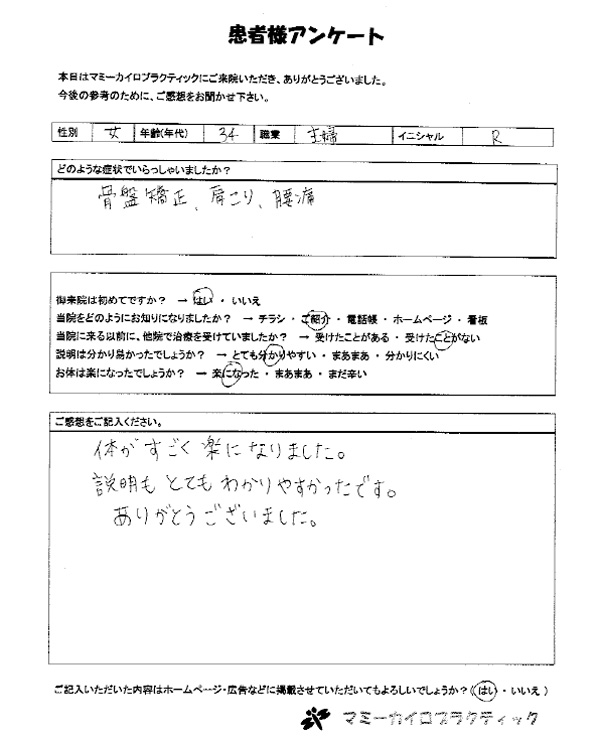 患者様アンケート
本日はマミーカイロプラクティックにご来院いただき、ありがとうございました。
今後の参考のために、ご感想をお聞かせ下さい。
性別 女 年齢(年代) 34 職業 主婦 イニシャル R
どのような症状でいらっしゃいましたか？
骨盤矯正、肩こり、腰痛
御来院は初めてですか？ → はい ・ いいえ
当院をどのようにお知りになりましたか？ → チラシ ・ ご紹介 ・ 電話帳 ・ ホームページ ・ 看板
当院に来る以前に、他院で治療を受けていましたか？ → 受けたことがある ・ 受けたことがない
説明は分かり易かったでしょうか？ → とても分かりやすい ・ まあまあ ・ 分かりにくい
お体は楽になったでしょうか？ → 楽になった ・ まあまあ ・ まだ辛い
ご感想をご記入ください。
体がすごく楽になりました。
説明もとてもわかりやすかったです。
ありがとうございました。
ご記入いただいた内容はホームページ・広告などに掲載させていただいてもよろしいでしょうか？（はい ・ いいえ）
マミーカイロプラクティック